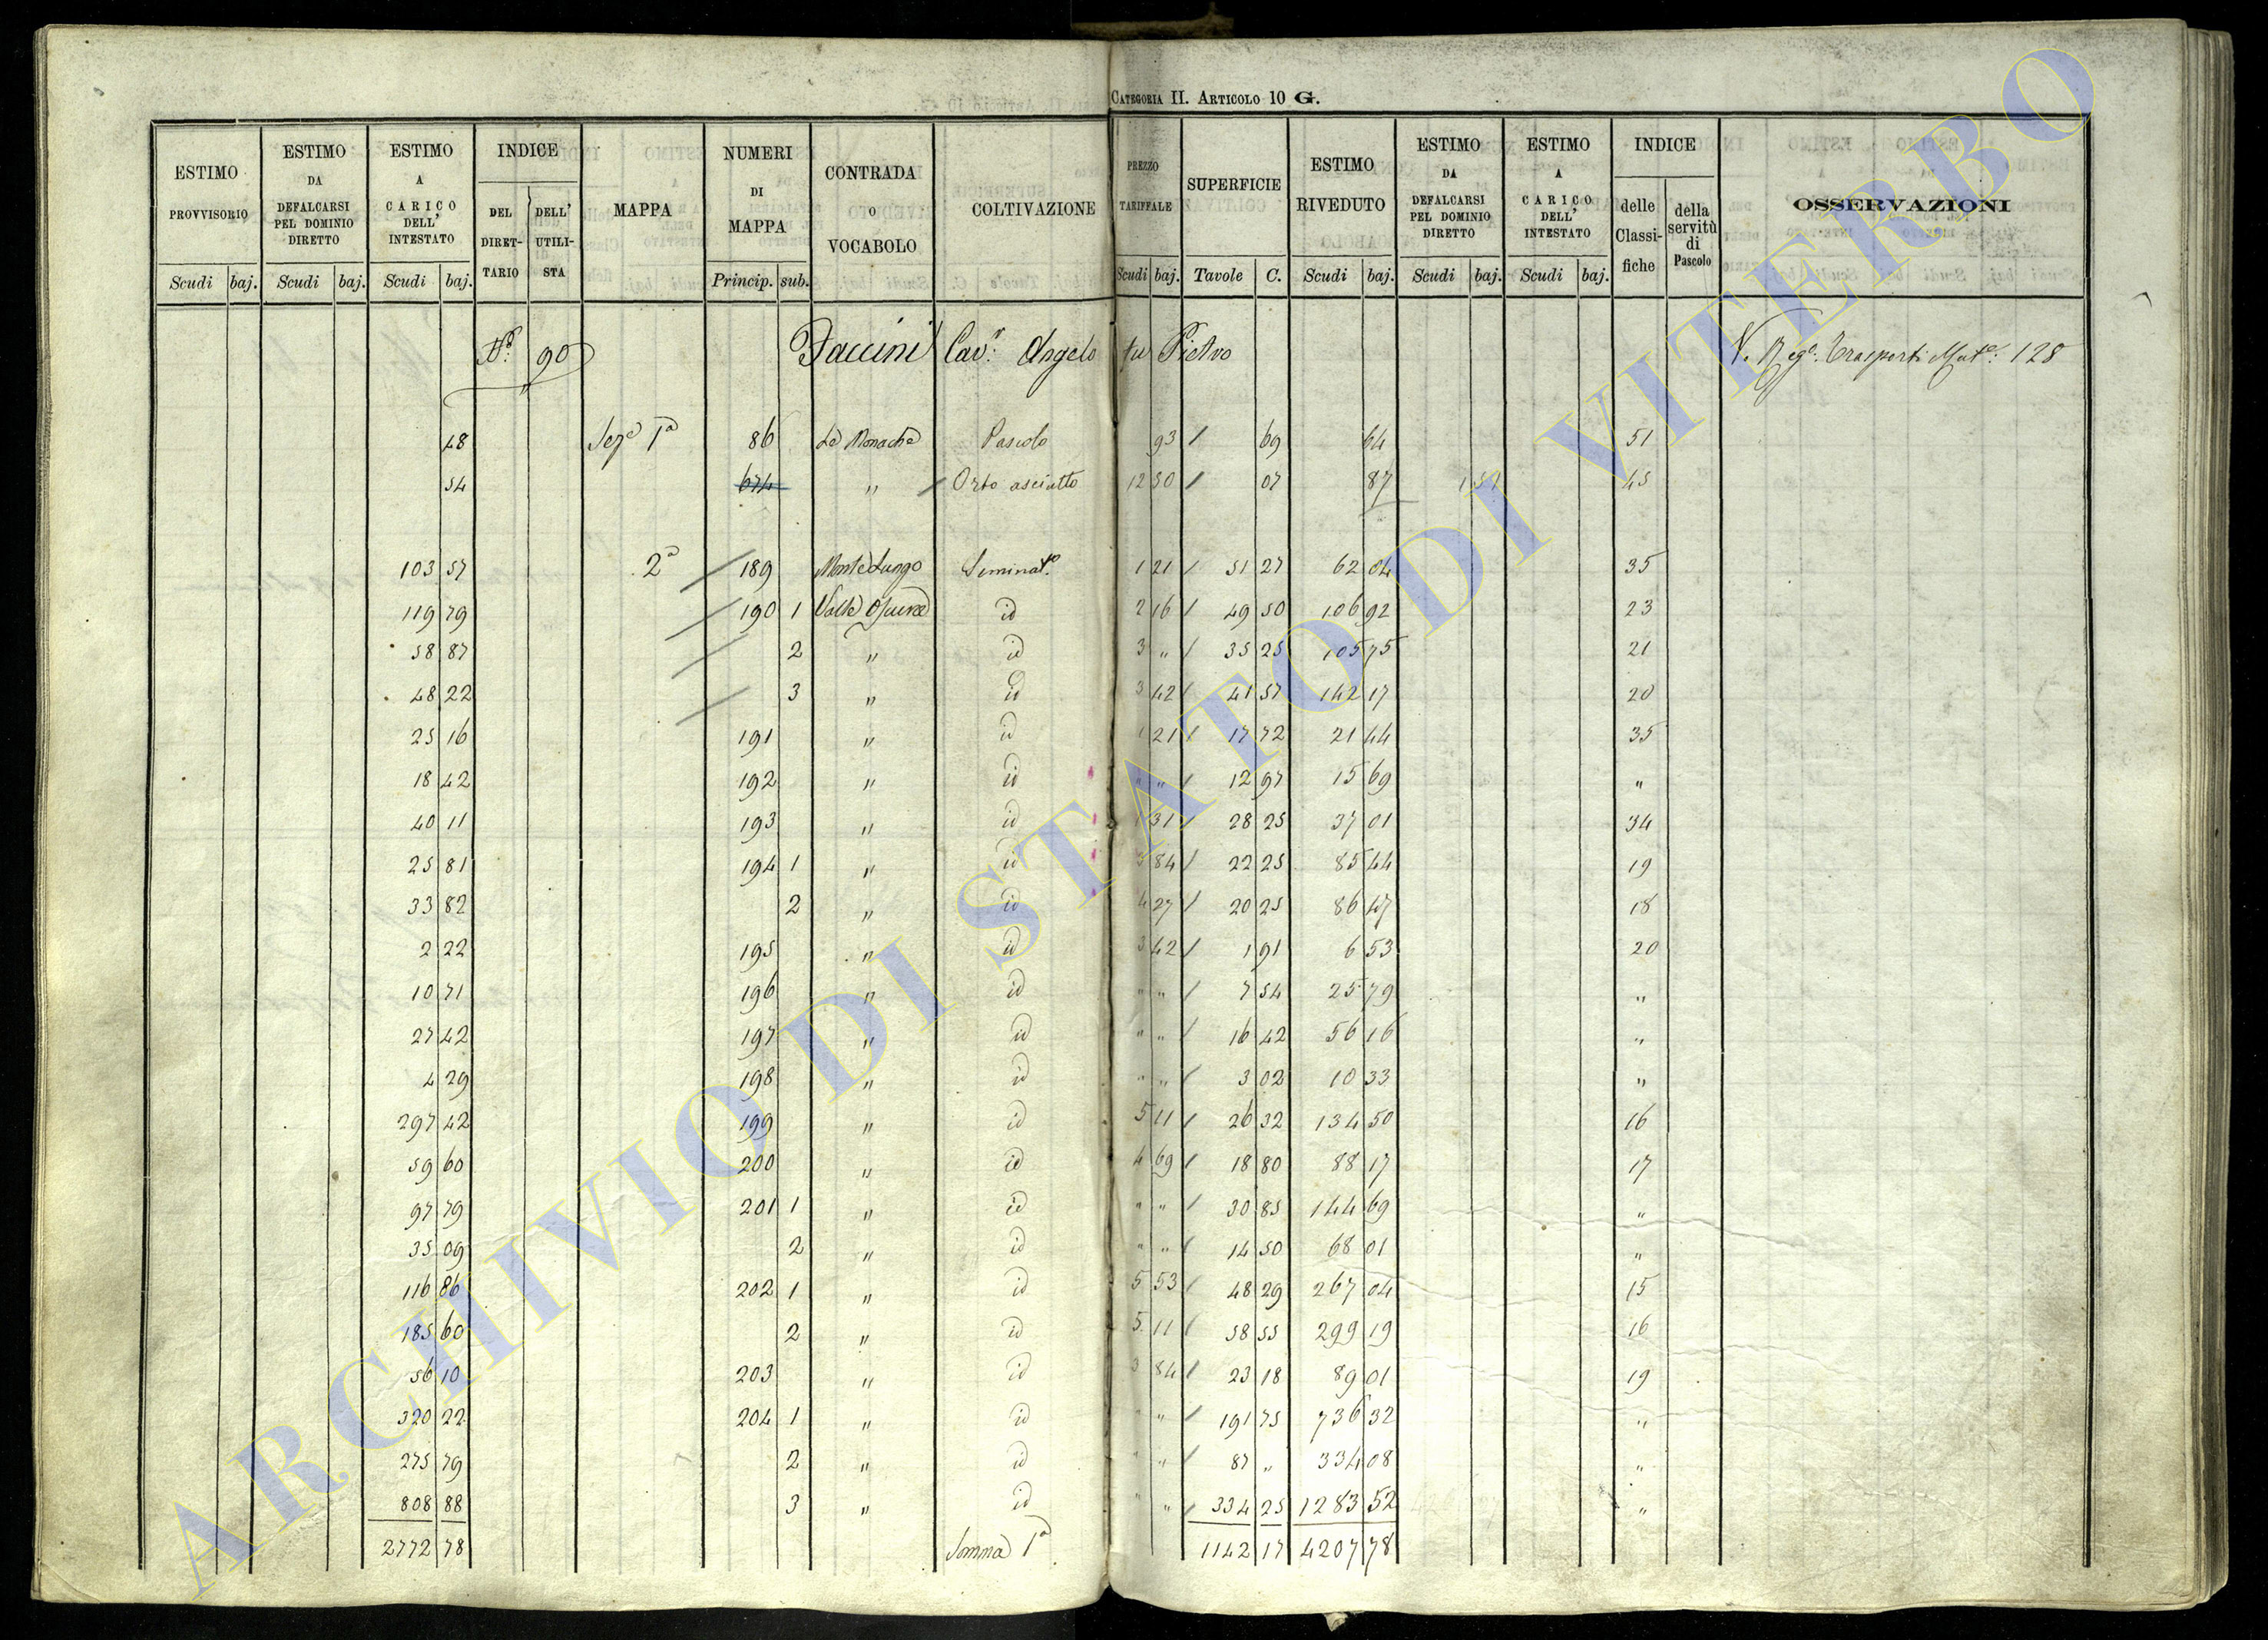 CATEGORIA II. ARTICOLO 10 G.
ESTIMO PROVVISORIO Scudi baj. ESTIMO DA DEFALCARSI PEL DOMINIO DIRETTO Scudi baj. ESTIMO A CARICO DELL' INTESTATO Scudi baj. INDICE DEL DIRETTARIO DELL' UTILISTA MAPPA NUMERI DI MAPPA Princip. sub. CONTRADA O VOCABOLO COLTIVAZIONE PREZZO TARIFFALE Scudi baj. SUPERFICIE Tavole C. ESTIMO RIVEDUTO Scudi baj. ESTIMO DA DEFALCARSI PEL DOMINIO DIRETTO Scudi baj. ESTIMO A CARICO DELL' INTESTATO Scudi baj. INDICE delle Classifiche della servitù di Pascolo OSSERVAZIONI
N.º 90 Faccini Cav.r Angelo fu Pietro V. Reg.o Trasporti Mat.e: 128
48 Sez.e 1a 86 Le Monache Pascolo 93 / 69 64 51
54 674 " / Orto asciutto 12 50 / 07 87 45
103 57 2a 189 Monte Lungo Seminat.o 1 21 / 51 27 62 04 35
119 79 190 1 Valle Oscura id 2 16 / 49 50 106 92 23
58 87 2 " id 3 " / 35 25 105 75 21
48 22 3 " id 3 42 / 41 57 142 17 20
25 16 191 " id 1 21 / 17 72 21 44 35
18 42 192 " id " " / 12 97 15 69 "
40 11 193 " id 1 31 / 28 25 37 01 34
25 81 194 1 " id 3 84 / 22 25 85 44 19
33 82 2 " id 4 27 / 20 25 86 47 18
2 22 195 " id 3 42 / 1 91 6 53 20
10 71 196 " id " " / 7 54 25 79 "
27 42 197 " id " " / 16 42 56 16 "
4 29 198 " id " " / 3 02 10 33 "
297 42 199 " id 5 11 / 26 32 134 50 16
59 60 200 " id 4 69 / 18 80 88 17 17
97 79 201 1 " id " " / 30 85 144 69 "
35 09 2 " id " " / 14 50 68 01 "
116 86 202 1 " id 5 53 / 48 29 267 04 15
185 60 2 " id 5 11 / 58 55 299 19 16
56 10 203 " id 3 84 / 23 18 89 01 19
320 22 204 1 " id " " / 191 75 736 32 "
275 79 2 " id " " / 87 " 334 08 "
808 88 3 " id " " / 334 25 1283 52 "
2772 78 Somma 1a 1142 17 4207 78
ARCHIVIO DI STATO DI VITERBO